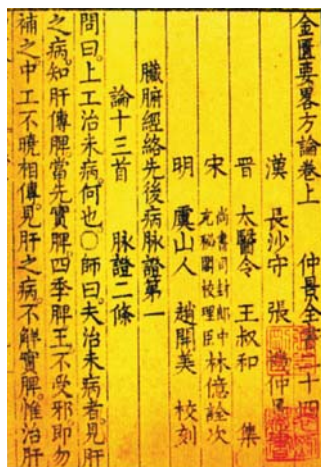 金匱要畧方論卷上 仲景全書二十四
漢 長沙守 張 仲
晋 太醫令 王叔和 集
宋 尚書司封郎中充秘閣校理臣林億詮次
明 虞山人 趙開美 校刻
臟腑經絡先後病脉證第一
論十三首 脉證二條
問曰上工治未病何也〇師曰夫治未病者見肝
之病知肝傳脾當先實脾四季脾王不受邪即勿
補之中工不曉相傳見肝之病不解實脾惟治肝